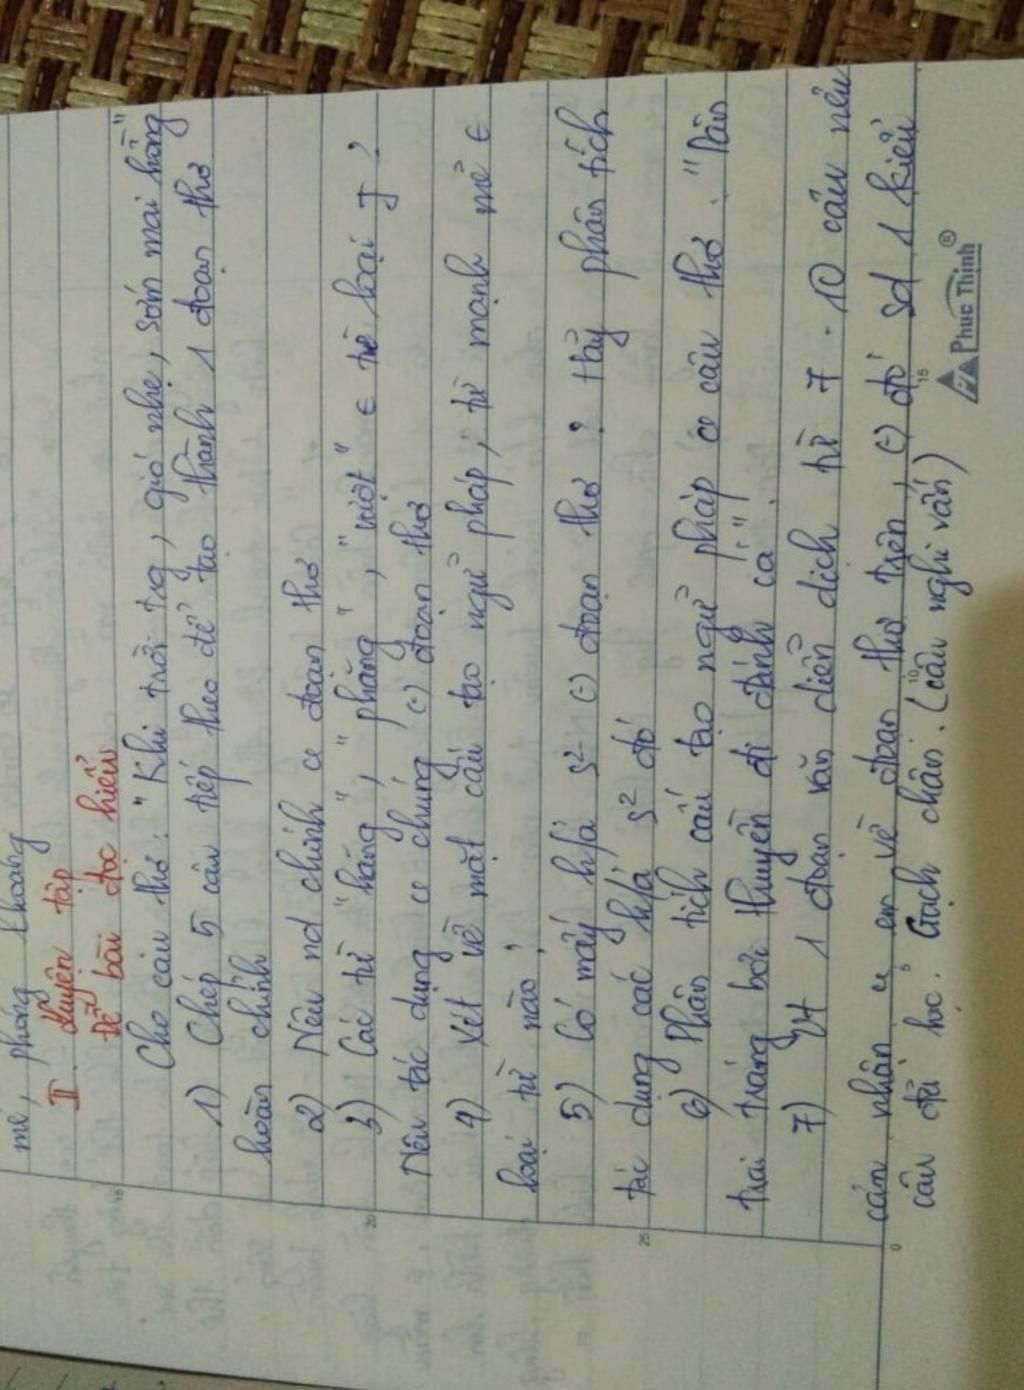 mẻ, phóng khoáng
II. Luyện tập
Đề bài đọc hiểu
Cho câu thơ: "Khi trời trg, gió nhẹ, sớm mai hồng"
1) Chép 5 câu tiếp theo để tạo thành 1 đoạn thơ
hoàn chỉnh
2) Nêu nd chính c đoạn thơ
3) Các từ "hăng", "phăng", "vượt" ∈ từ loại j?
Nêu tác dụng c chúng (-) đoạn thơ
4) Xét về mặt cấu tạo ngữ pháp, từ mạnh mẽ ∈
loại từ nào?
5) Có mấy h/á s² (-) đoạn thơ? Hãy phân tích
tác dụng các h/á s² đó
6) Phân tích cấu tạo ngữ pháp c câu thơ: "Dân
trai tráng bơi thuyền đi đánh cá".
7) Vt 1 đoạn văn diễn dịch từ 7 - 10 câu nêu
cảm nhận c em về đoạn thơ trên, (-) đó sd 1 kiểu
câu đã học. Gạch chân. (câu nghi vấn)
Phuc Thinh ®
15
20
25
0
5
10
15